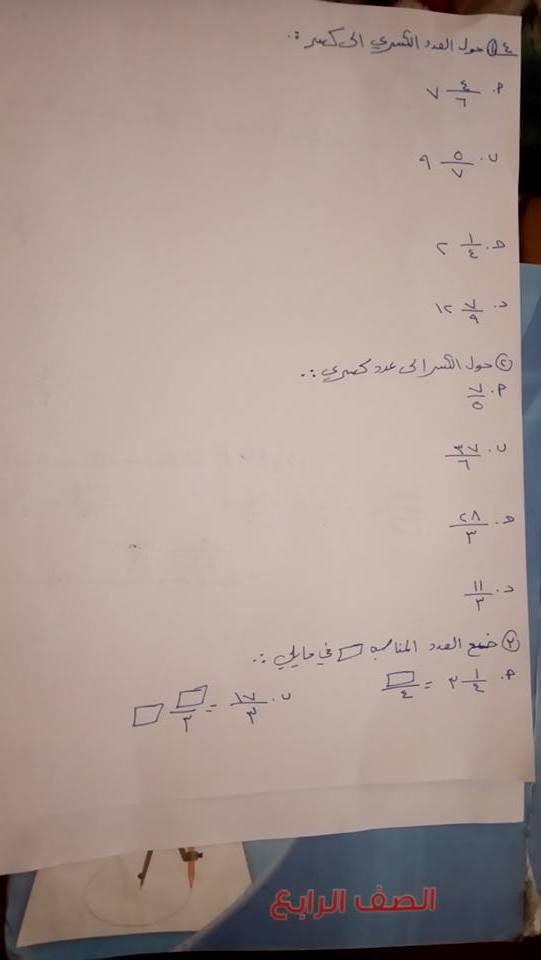 ٤ ١ حول العدد الكسري الى كسر :.
٩. ٤/٦ ٧
ب. ٥/٧ ٩
ج. ١/٤ ٢
د. ٧/٩ ١٢
٢ حول الكسر الى عدد كسري :.
٩. ٧/٥
ب. ٣٧/٦
ج. ٢٨/٣
د. ١١/٣
٣ ضع العدد المناسب □ في مايلي :.
٩. ١/٤ ٣ = □/٤ ب. ١٧/٣ = □/٣ □
الصف الرابع